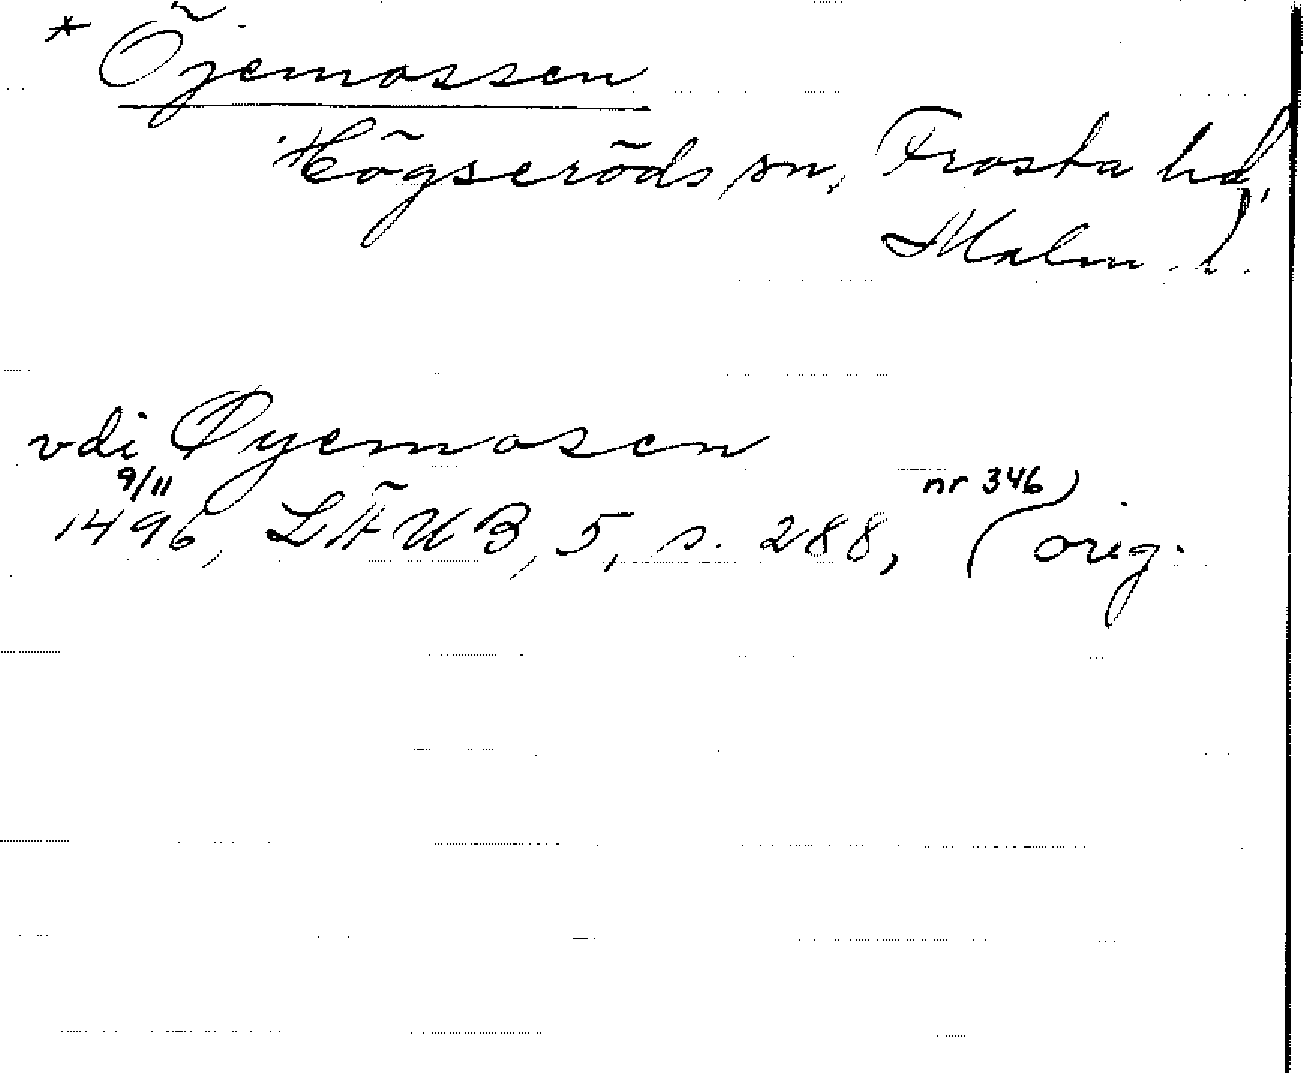 * Öjemossen
Högseröds sn, Frosta hd,
Malm. l.
vdi Øyemosen
9/11 nr 346
1496, LÄUB, 5, s. 288, (orig.